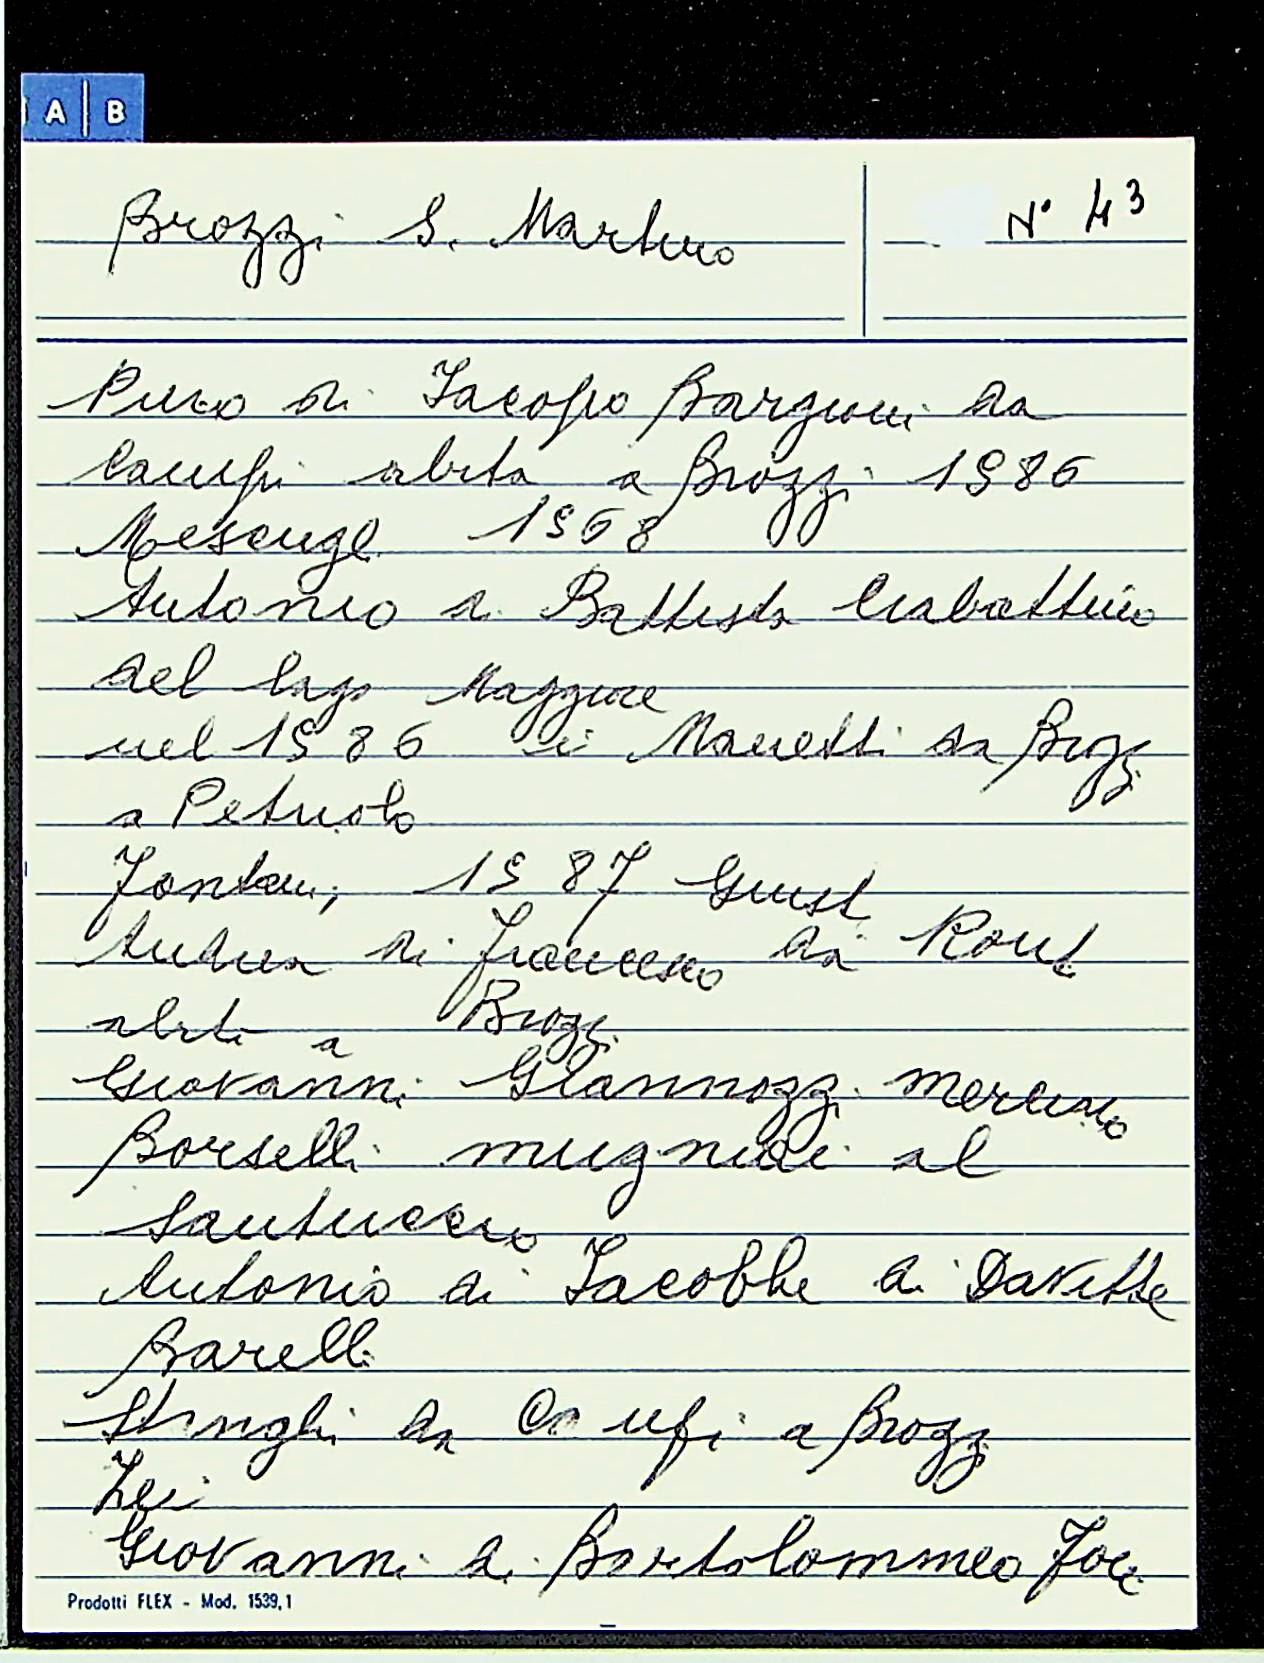 A B
Brozzi S. Martino
N° 43
Piero di Iacopo Bargioni da
Campi abita a Brozzi 1586
Mesengl. 1568
Antonio di Battista Ciabattino
del lago Maggiore
nel 1586 i Manetti da Brozzi
a Petriolo
Fontani, 1587 Giusti
Andrea di Francesco da Ront
abita a Brozzi
Giovanni Giannozzi merciaio
Borselli mugniai al
Santuccio
Antonio di Iacobbe di Davitte
Barelli
Stinghi da Campi a Brozzi
Giovanni di Bartolommeo
Prodotti FLEX - Mod. 1539,1